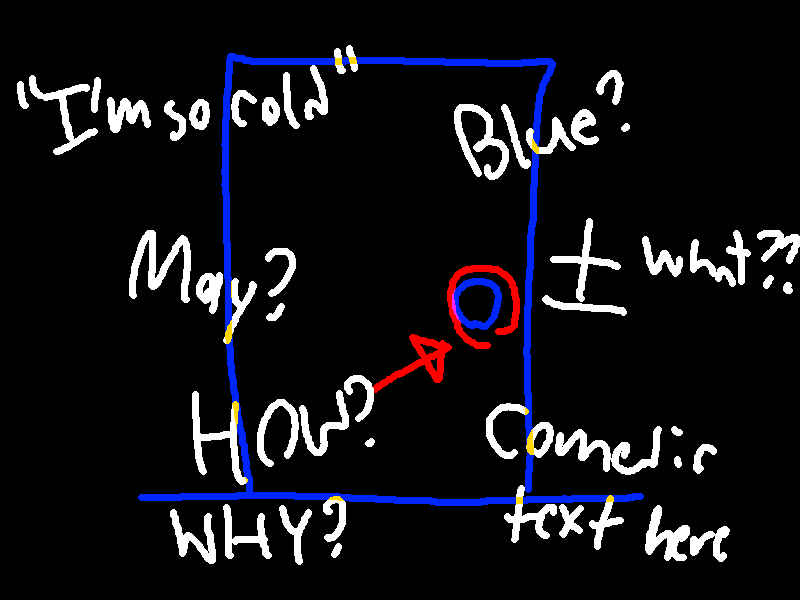 "I'm so cold"
Blue?
May?
± what??
HOW?
Comedic
text here
WHY?